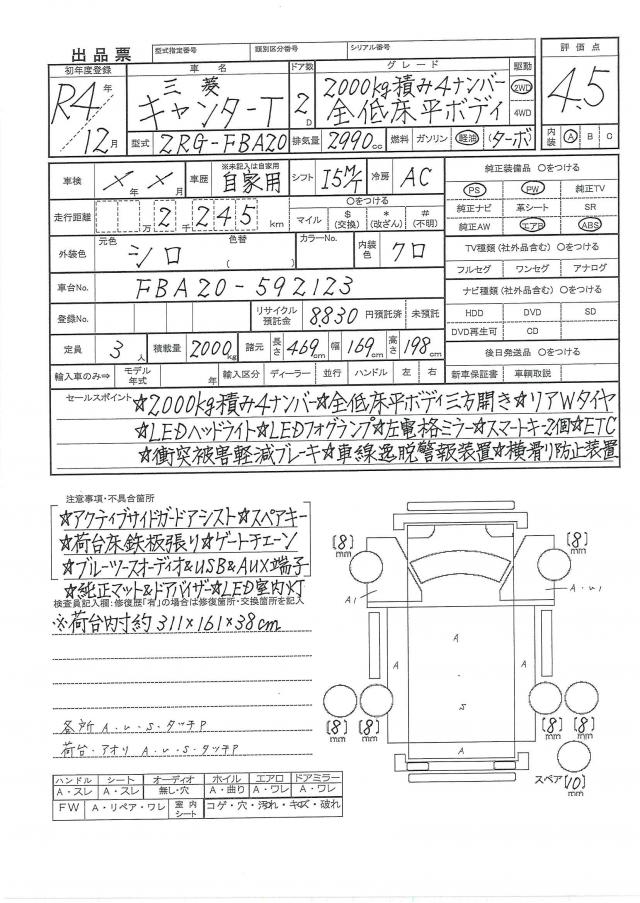 出品票 型式指定番号 類別区分番号 シリアル番号
初年度登録 車名 ドア数 グレード 駆動 評価点
R4年 12月 三菱 キャンターT 2D 2000kg積み4ナンバー 全低床平ボディ 2WD 4WD 4.5
型式 2RG-FBA20 排気量 2990cc 燃料 ガソリン 軽油 ターボ 内装 A B C
車検 ×年 ×月 車歴 ※未記入は自家用 自家用 シフト I5M/T 冷房 AC 純正装備品 ○をつける
PS PW 純正TV
走行距離 万 2千 245km ○をつける マイル $(交換) *(改ざん) #(不明) 純正ナビ 革シート SR
純正AW エアB ABS
外装色 元色 シロ 色替 ( ) カラーNo. 内装色 クロ TV種類(社外品含む)○をつける
フルセグ ワンセグ アナログ
車台No. FBA20-592123 ナビ種類(社外品含む)○をつける
登録No. リサイクル預託金 8830円預託済 未預託 HDD DVD SD
DVD再生可 CD
定員 3人 積載量 2000kg 諸元 長さ 469cm 幅 169cm 高さ 198cm 後日発送品 ○をつける
輸入車のみ⇒ モデル年式 年 輸入区分 ディーラー 並行 ハンドル 左 右 新車保証書 車輌取説
セールスポイント ☆2000kg積み4ナンバー☆全低床平ボディ三方開き☆リアWタイヤ
☆LEDヘッドライト☆LEDフォグランプ☆左電格ミラー☆スマートキー2個☆ETC
☆衝突被害軽減ブレーキ☆車線逸脱警報装置☆横滑り防止装置
注意事項・不具合箇所
☆アクティブサイドガードアシスト☆スペアキー
☆荷台床鉄板張り☆ゲートチェーン
☆ブルーツースオーディオ&USB&AUX端子
☆純正マット&ドアバイザー☆LED室内灯
検査員記入欄:修復歴「有」の場合は修復箇所・交換箇所を記入
※荷台内寸約311×161×38cm
各所 A・U・S・タッチP
荷台・アオリ A・U・S・タッチP
[8]mm [8]mm
A1 A・U1
A
A A
S
[8]mm [8]mm [8]mm [8]mm
A
スペア [10]mm
ハンドル シート オーディオ ホイル エアロ ドアミラー
A・スレ A・スレ 無し・穴 A・曲り A・ワレ A・ワレ
FW A・リペア・ワレ 室内シート コゲ・穴・汚れ・キズ・破れ